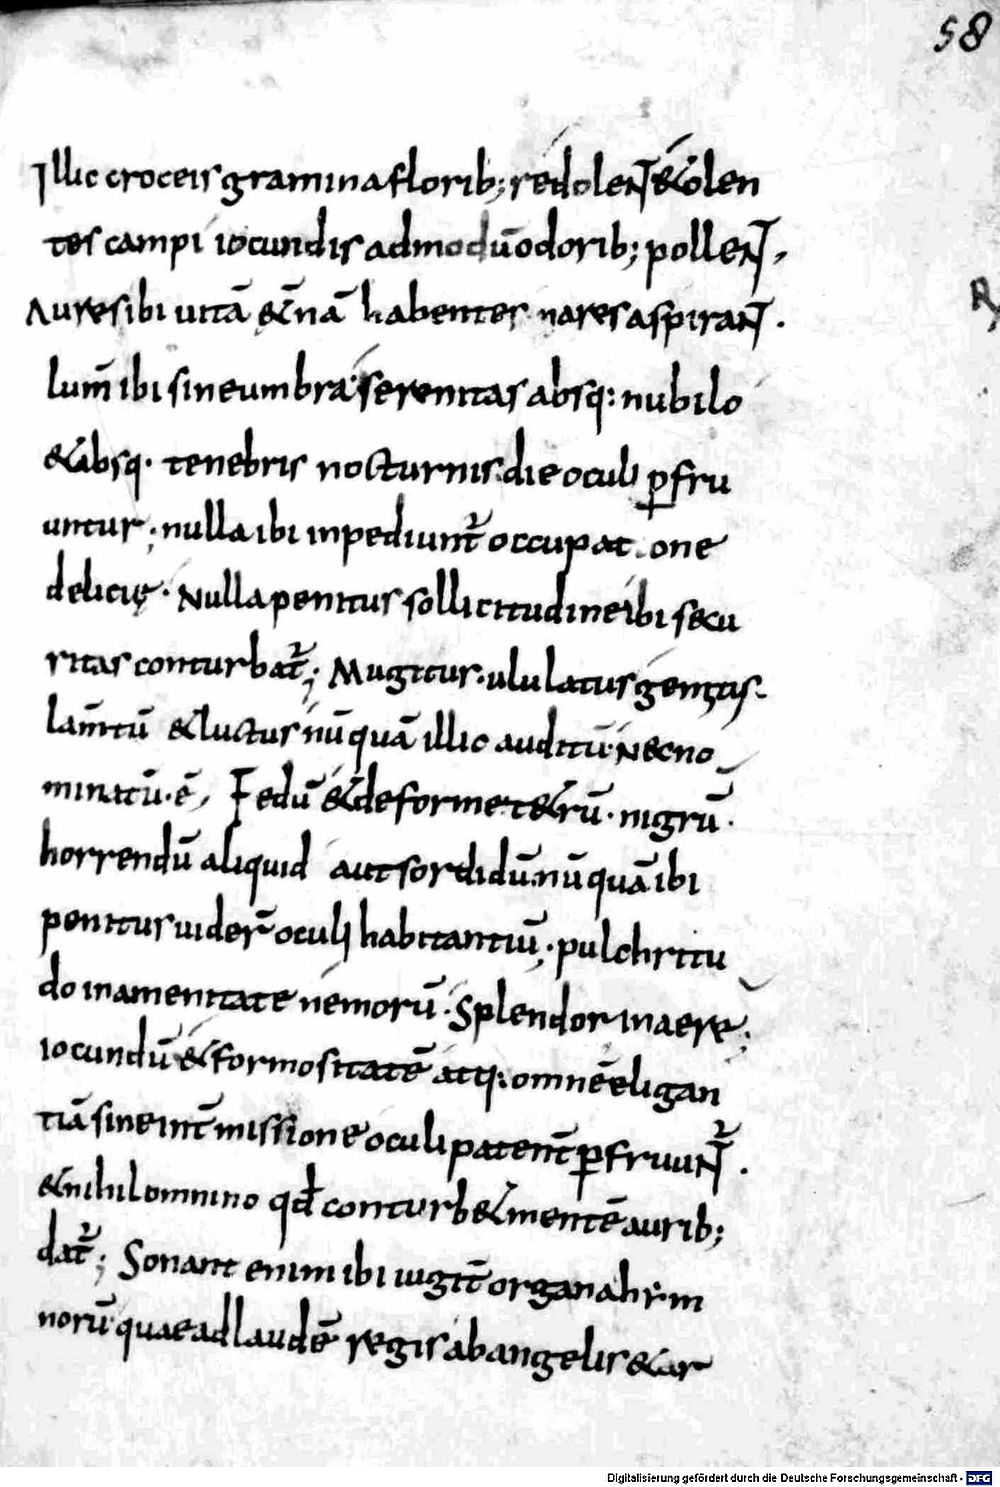 58
Illic croceis gramina florib; redolent & olen
tes campi iocundis admodū odorib; pollent.
Aures ibi uitā & n̄nā habentes nares aspirant.
lum̄ ibi sine umbra serenitas absq: nubilo
& absq. tenebris nocturnis. die oculi ꝑfru
untur; nulla ibi inpediunt̄ occupatione
delicię. Nulla penitus sollicitudine ibi secu
ritas conturbat̄; Mugitus. ululatus gemitus.
lam̄tū & luctus nūquā illic auditū. Nec no
minatū. ē, Fedū & deforme. tetrū. nigrū.
horrendū aliquid aut sordidū. nūquā ibi
penitus uider̄ oculi habitantiū. pulchritu
do in amenitate nemorū. Splendor in aere.
iocundū & formositatē atq: omnē eligan
tiā sine int̄missione oculi patent̄ ꝑfruunt̄.
& nihil omnino qđ conturb& mentē aurib;
dat̄; Sonant enim ibi iugit̄ organa hym
norū quae ad laudē regis ab angelis & ar
R
Digitalisierung gefördert durch die Deutsche Forschungsgemeinschaft - DFG